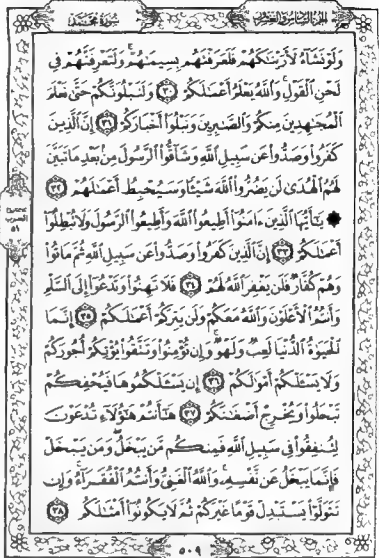 الجزء السادس والعشرون سورة محمد
وَلَوْ نَشَآءُ لَأَرَيْنَٰكَهُمْ فَلَعَرَفْتَهُم بِسِيمَٰهُمْ ۚ وَلَتَعْرِفَنَّهُمْ فِى
لَحْنِ ٱلْقَوْلِ ۚ وَٱللَّهُ يَعْلَمُ أَعْمَٰلَكُمْ ٣٠ وَلَنَبْلُوَنَّكُمْ حَتَّىٰ نَعْلَمَ
ٱلْمُجَٰهِدِينَ مِنكُمْ وَٱلصَّٰبِرِينَ وَنَبْلُوَا۟ أَخْبَارَكُمْ ٣١ إِنَّ ٱلَّذِينَ
كَفَرُوا۟ وَصَدُّوا۟ عَن سَبِيلِ ٱللَّهِ وَشَآقُّوا۟ ٱلرَّسُولَ مِنۢ بَعْدِ مَا تَبَيَّنَ
لَهُمُ ٱلْهُدَىٰ لَن يَضُرُّوا۟ ٱللَّهَ شَيْـًٔا وَسَيُحْبِطُ أَعْمَٰلَهُمْ ٣٢
۞ يَٰٓأَيُّهَا ٱلَّذِينَ ءَامَنُوٓا۟ أَطِيعُوا۟ ٱللَّهَ وَأَطِيعُوا۟ ٱلرَّسُولَ وَلَا تُبْطِلُوٓا۟
أَعْمَٰلَكُمْ ٣٣ إِنَّ ٱلَّذِينَ كَفَرُوا۟ وَصَدُّوا۟ عَن سَبِيلِ ٱللَّهِ ثُمَّ مَاتُوا۟
وَهُمْ كُفَّارٌ فَلَن يَغْفِرَ ٱللَّهُ لَهُمْ ٣٤ فَلَا تَهِنُوا۟ وَتَدْعُوٓا۟ إِلَى ٱلسَّلْمِ
وَأَنتُمُ ٱلْأَعْلَوْنَ وَٱللَّهُ مَعَكُمْ وَلَن يَتِرَكُمْ أَعْمَٰلَكُمْ ٣٥ إِنَّمَا
ٱلْحَيَوٰةُ ٱلدُّنْيَا لَعِبٌ وَلَهْوٌ ۚ وَإِن تُؤْمِنُوا۟ وَتَتَّقُوا۟ يُؤْتِكُمْ أُجُورَكُمْ
وَلَا يَسْـَٔلْكُمْ أَمْوَٰلَكُمْ ٣٦ إِن يَسْـَٔلْكُمُوهَا فَيُحْفِكُمْ
تَبْخَلُوا۟ وَيُخْرِجْ أَضْغَٰنَكُمْ ٣٧ هَٰٓأَنتُمْ هَٰٓؤُلَآءِ تُدْعَوْنَ
لِتُنفِقُوا۟ فِى سَبِيلِ ٱللَّهِ فَمِنكُم مَّن يَبْخَلُ ۖ وَمَن يَبْخَلْ
فَإِنَّمَا يَبْخَلُ عَن نَّفْسِهِۦ ۚ وَٱللَّهُ ٱلْغَنِىُّ وَأَنتُمُ ٱلْفُقَرَآءُ ۚ وَإِن
تَتَوَلَّوْا۟ يَسْتَبْدِلْ قَوْمًا غَيْرَكُمْ ثُمَّ لَا يَكُونُوٓا۟ أَمْثَٰلَكُم ٣٨
الحزب
٥١
٥٠٩